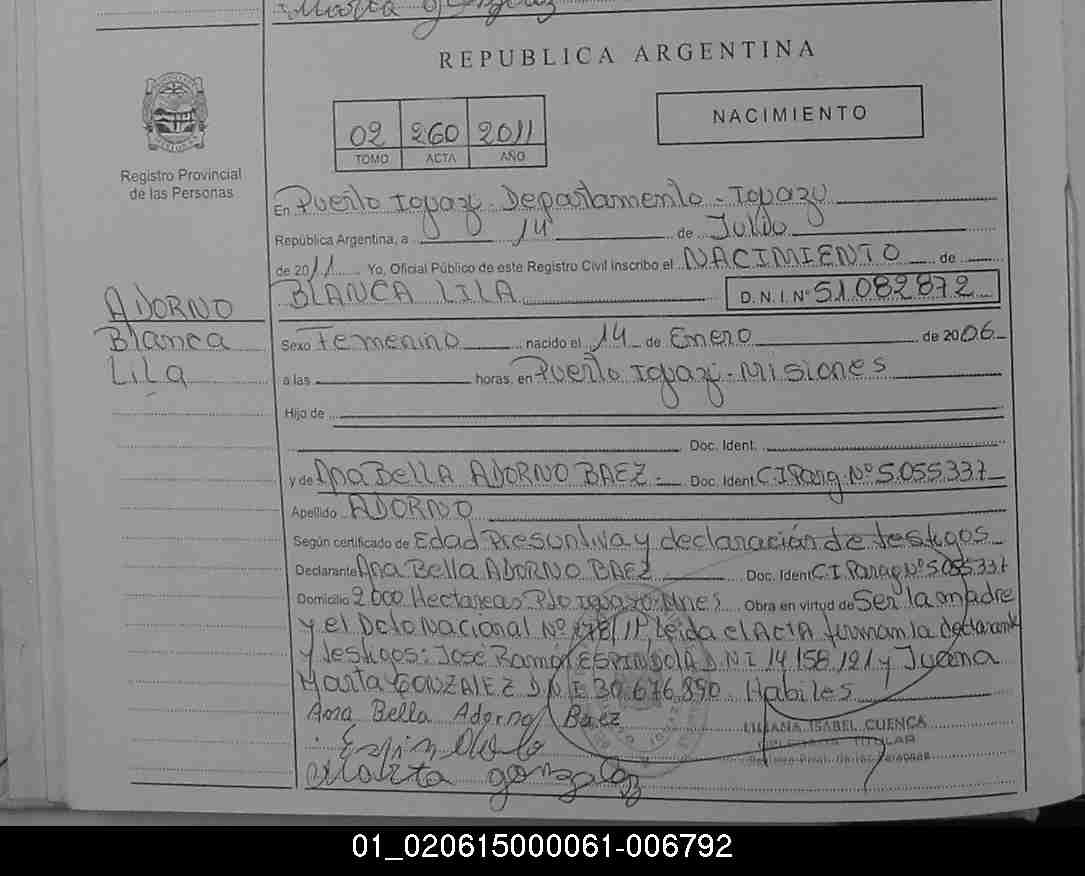 Marta gonzalez
REPUBLICA ARGENTINA
Registro Provincial
de las Personas
02 260 2011
TOMO ACTA AÑO
NACIMIENTO
En Puerto Iguazú - Departamento - Iguazú
República Argentina, a 14 de Julio
de 2011 Yo, Oficial Público de este Registro Civil inscribo el NACIMIENTO de
BLANCA LILA D.N.I. Nº 51.082872
ADORNO
Blanca
Lila
Sexo Femenino nacido el 14 de Enero de 2006
a las horas, en Puerto Iguazú - Misiones
Hijo de
Doc. Ident.
y de Ana Bella ADORNO BAEZ Doc. Ident C.I Parag. Nº 5.055.337
Apellido ADORNO
Según certificado de Edad Presuntiva y declaración de testigos
Declarante Ana Bella ADORNO BAEZ Doc. Ident C.I. Parag Nº 5.055.337
Domicilio 2000 Hectareas Pto Iguazú Mnes Obra en virtud de Ser la madre
y el Dcto Nacional Nº 278/11 Leida el Acta firman la declarante
y testigos: José Ramón ESPINDOLA D.N.I 14.158.121 y
Marta GONZALEZ D.N.I 30.676.890. Habiles
Ana Bella Adorno Baez
LILIANA ISABEL CUENCA
TITULAR
Marta gonzalez
01_020615000061-006792